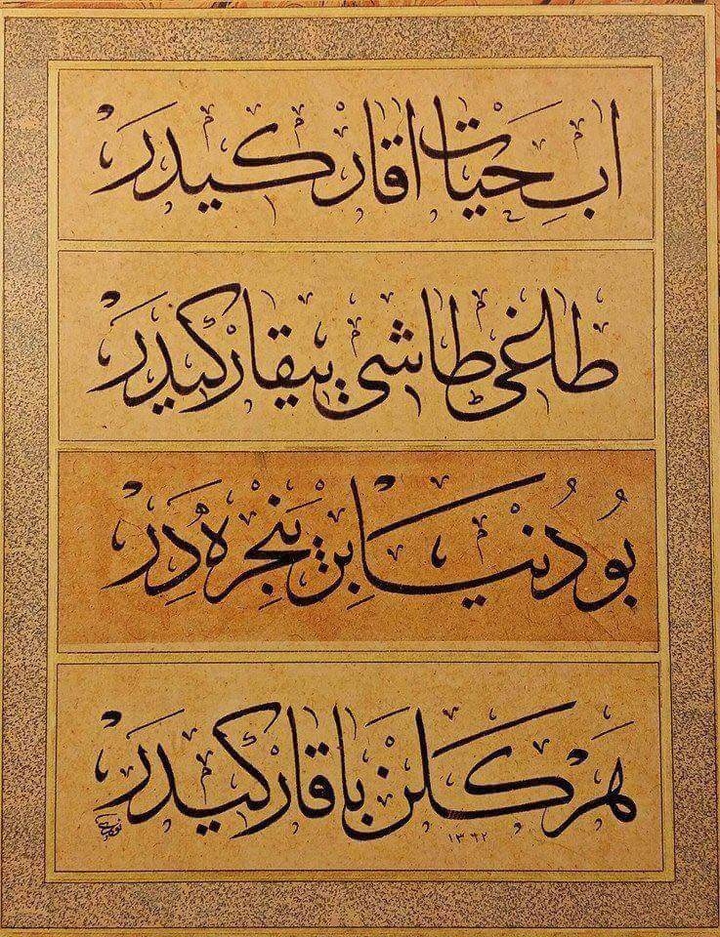 اب حیات اقار کیدر
طاغی طاشی ییقار کیدر
بو دنیا بر پنجره در
هر کلن باقار کیدر
١٣٦٢